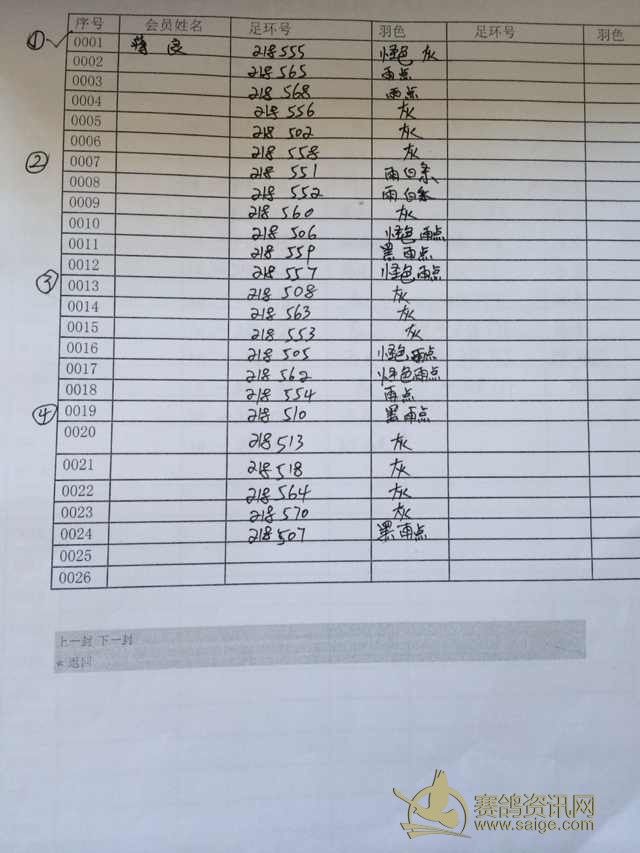 序号 会员姓名 足环号 羽色 足环号 羽色
① ✓ 0001 蒋 良 218 555 怪色 灰
0002 218 565 雨点
0003 218 568 雨点
0004 218 556 灰
0005 218 502 灰
0006 218 558 灰
② 0007 218 551 雨白条
0008 218 552 雨白条
0009 218 560 灰
0010 218 506 怪色雨点
0011 218 559 黑雨点
0012 218 557 怪色雨点
③ 0013 218 508 灰
0014 218 563 灰
0015 218 553 灰
0016 218 505 怪色雨点
0017 218 562 怪色雨点
0018 218 554 雨点
④ 0019 218 510 黑雨点
0020 218 513 灰
0021 218 518 灰
0022 218 564 灰
0023 218 570 灰
0024 218 507 黑雨点
0025
0026
上一封 下一封
* 返回
赛鸽资讯网
www.saige.com